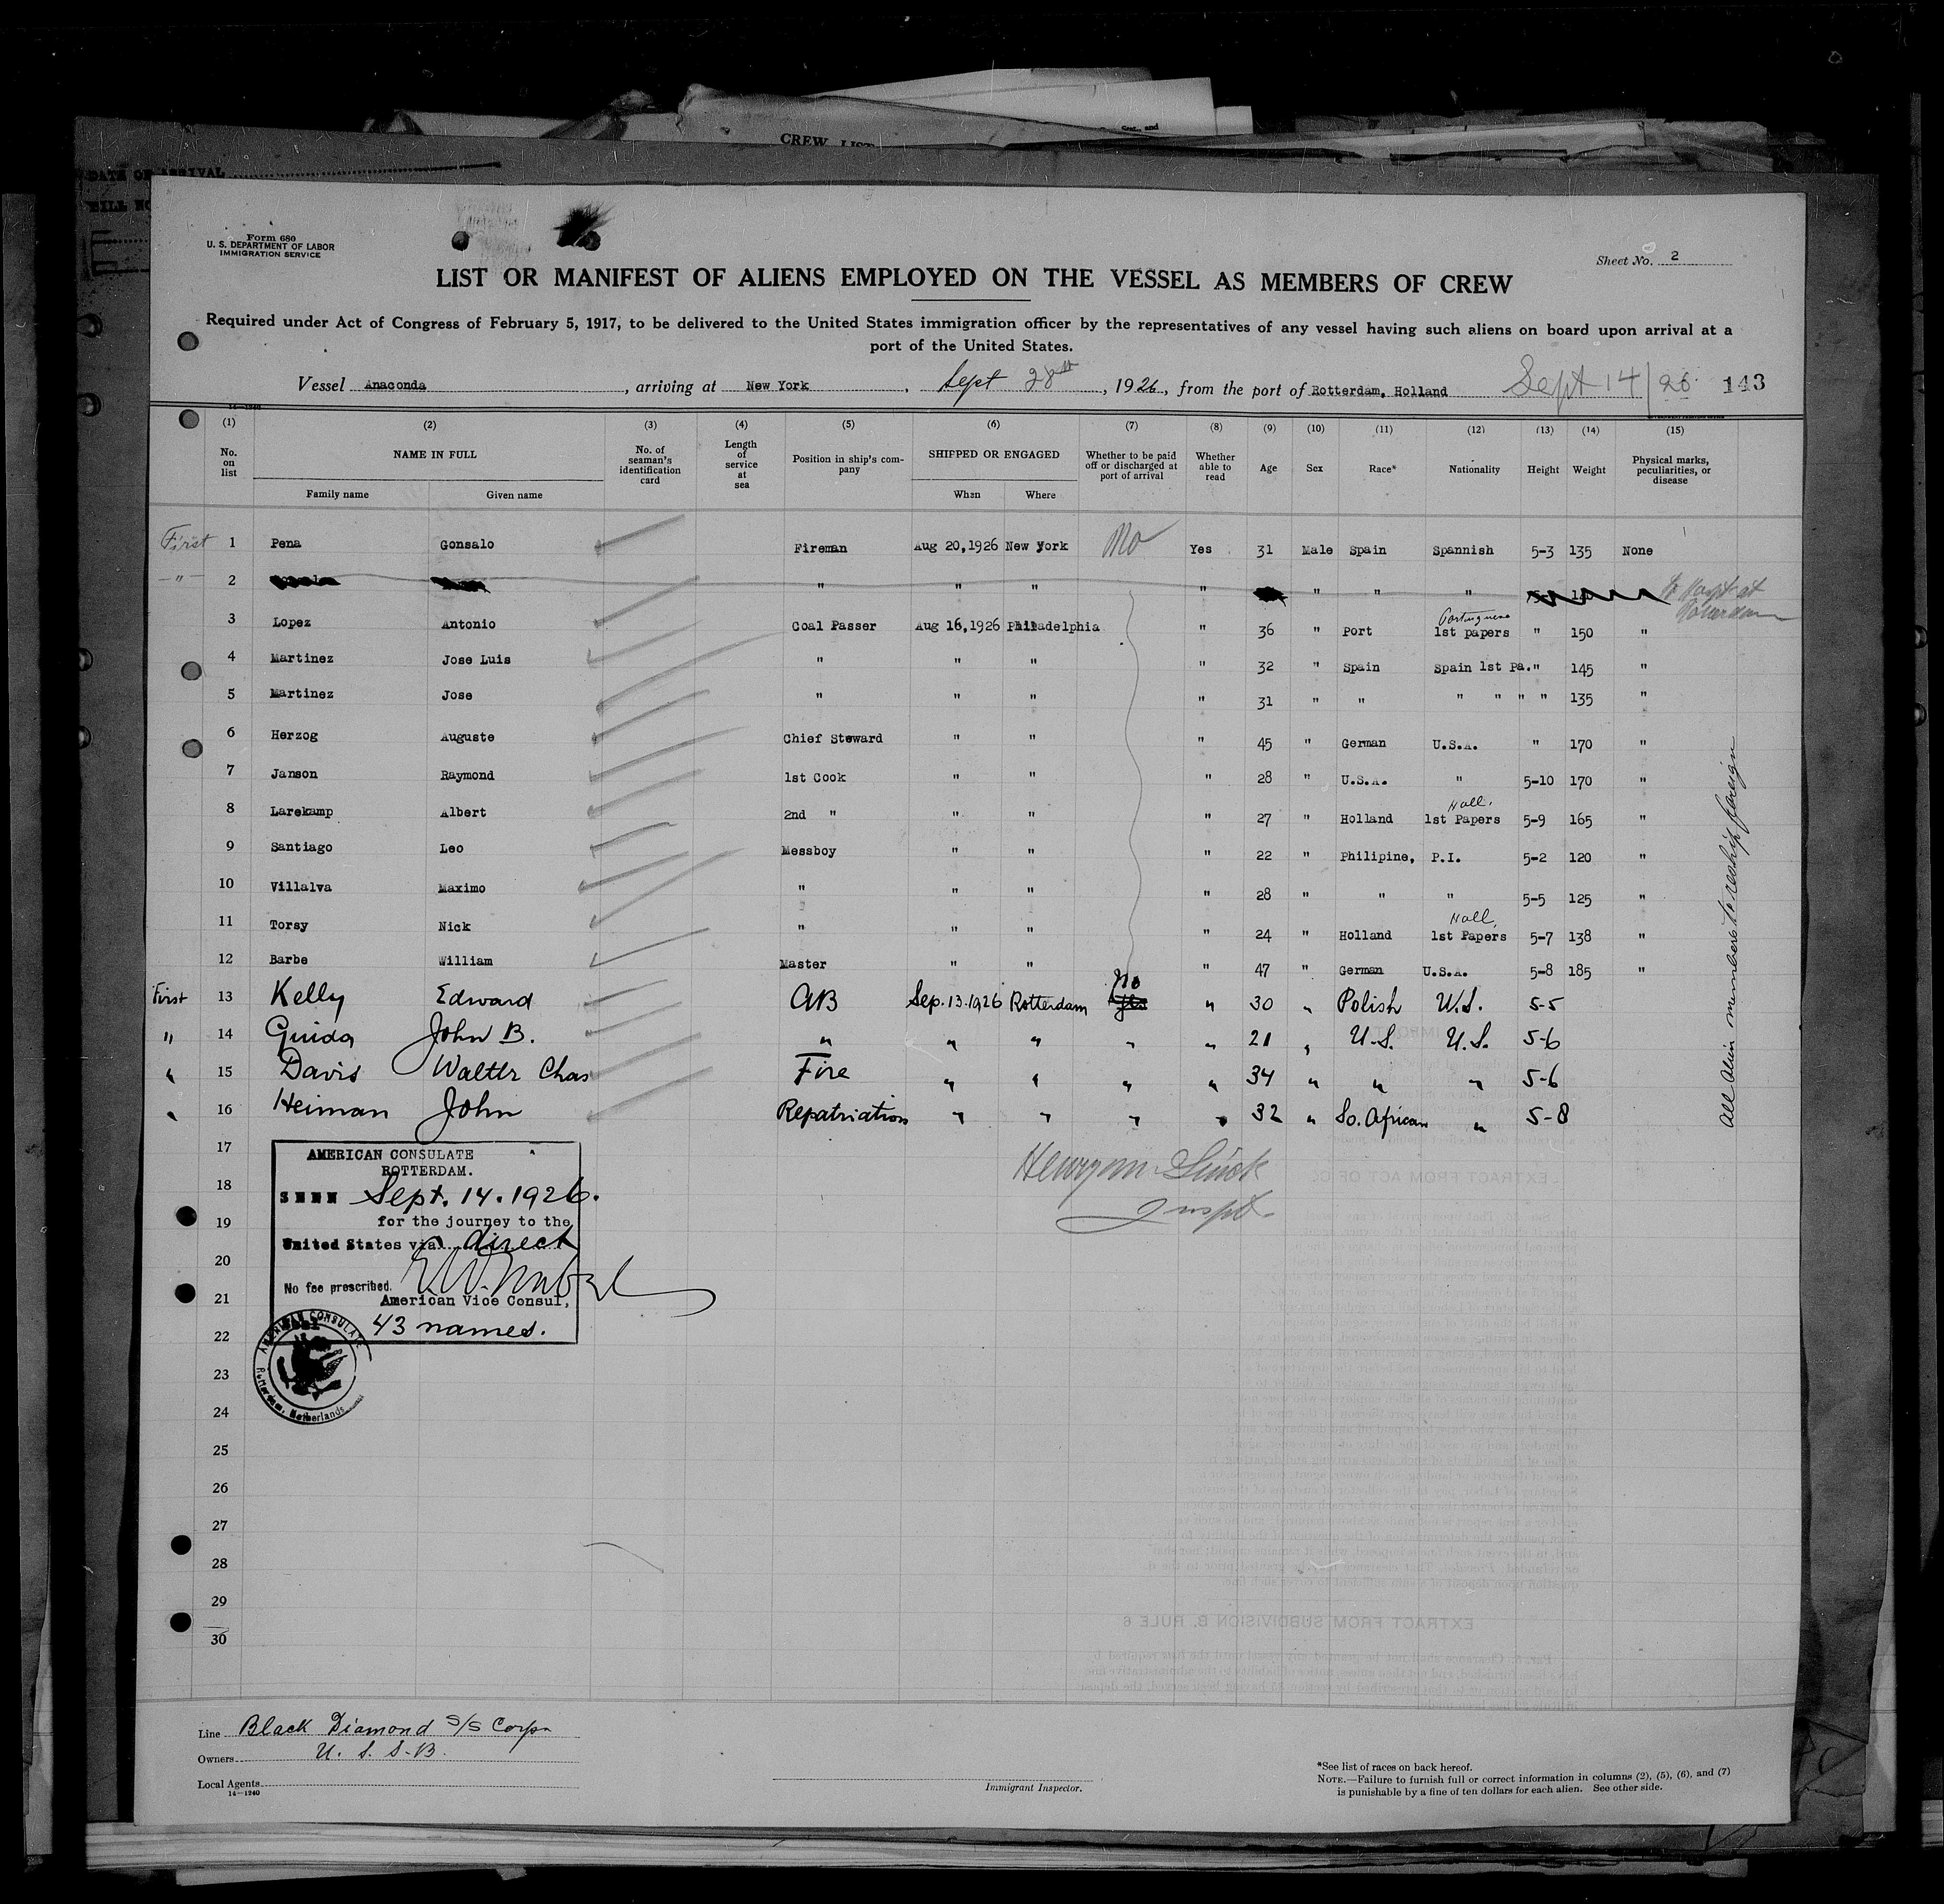 CREW LIST
DATE OF ARRIVAL
Form 680
U. S. DEPARTMENT OF LABOR
IMMIGRATION SERVICE
Sheet No. 2
LIST OR MANIFEST OF ALIENS EMPLOYED ON THE VESSEL AS MEMBERS OF CREW
Required under Act of Congress of February 5, 1917, to be delivered to the United States immigration officer by the representatives of any vessel having such aliens on board upon arrival at a
port of the United States.
Vessel Anaconda, arriving at New York, Sept 28th, 1926, from the port of Rotterdam, Holland Sept 14/26. 143
(1) (2) (3) (4) (5) (6) (7) (8) (9) (10) (11) (12) (13) (14) (15)
No. on list NAME IN FULL No. of seaman's identification card Length of service at sea Position in ship's company SHIPPED OR ENGAGED Whether to be paid off or discharged at port of arrival Whether able to read Age Sex Race* Nationality Height Weight Physical marks, peculiarities, or disease
Family name Given name When Where
First 1 Pena Gonsalo Fireman Aug 20,1926 New York No Yes 31 Male Spain Spannish 5-3 135 None
" 2 " " " " " " "
3 Lopez Antonio Coal Passer Aug 16,1926 Philadelphia " 36 " Port Portuguese 1st papers " 150 "
4 Martinez Jose Luis " " " " 32 " Spain Spain 1st Pa." 145 "
5 Martinez Jose " " " " 31 " " " " " " 135 "
6 Herzog Auguste Chief Steward " " " 45 " German U.S.A. " 170 "
7 Janson Raymond 1st Cook " " " 28 " U.S.A. " 5-10 170 "
8 Larekamp Albert 2nd " " " " 27 " Holland Holl. 1st Papers 5-9 165 "
9 Santiago Leo Messboy " " " 22 " Philipine, P.I. 5-2 120 "
10 Villalva Maximo " " " " 28 " " " 5-5 125 "
11 Torsy Nick " " " " 24 " Holland Holl. 1st Papers 5-7 138 "
12 Barbe William Master " " " 47 " German U.S.A. 5-8 185 "
First 13 Kelly Edward AB Sep. 13. 1926 Rotterdam No yes " 30 " Polish U.S. 5-5
" 14 Guida John B. " " " " " 21 " U.S. U.S. 5-6
" 15 Davis Walter Chas Fire " " " " 34 " " " 5-6
" 16 Heiman John Repatriation " " " " 32 " So. African " 5-8
All alien members to reship foreign
17
18
19
20
21
22
23
24
25
26
27
28
29
30
AMERICAN CONSULATE
ROTTERDAM.
SEEN Sept. 14. 1926.
for the journey to the
United States via direct
No fee prescribed.
American Vice Consul,
43 names.
AMERICAN CONSULATE
Rotterdam, Netherlands
Inspt.
Line Black Diamond S/S Corpn
Owners U. S. S. B.
Local Agents
14—1240
Immigrant Inspector.
*See list of races on back hereof.
NOTE.—Failure to furnish full or correct information in columns (2), (5), (6), and (7)
is punishable by a fine of ten dollars for each alien. See other side.